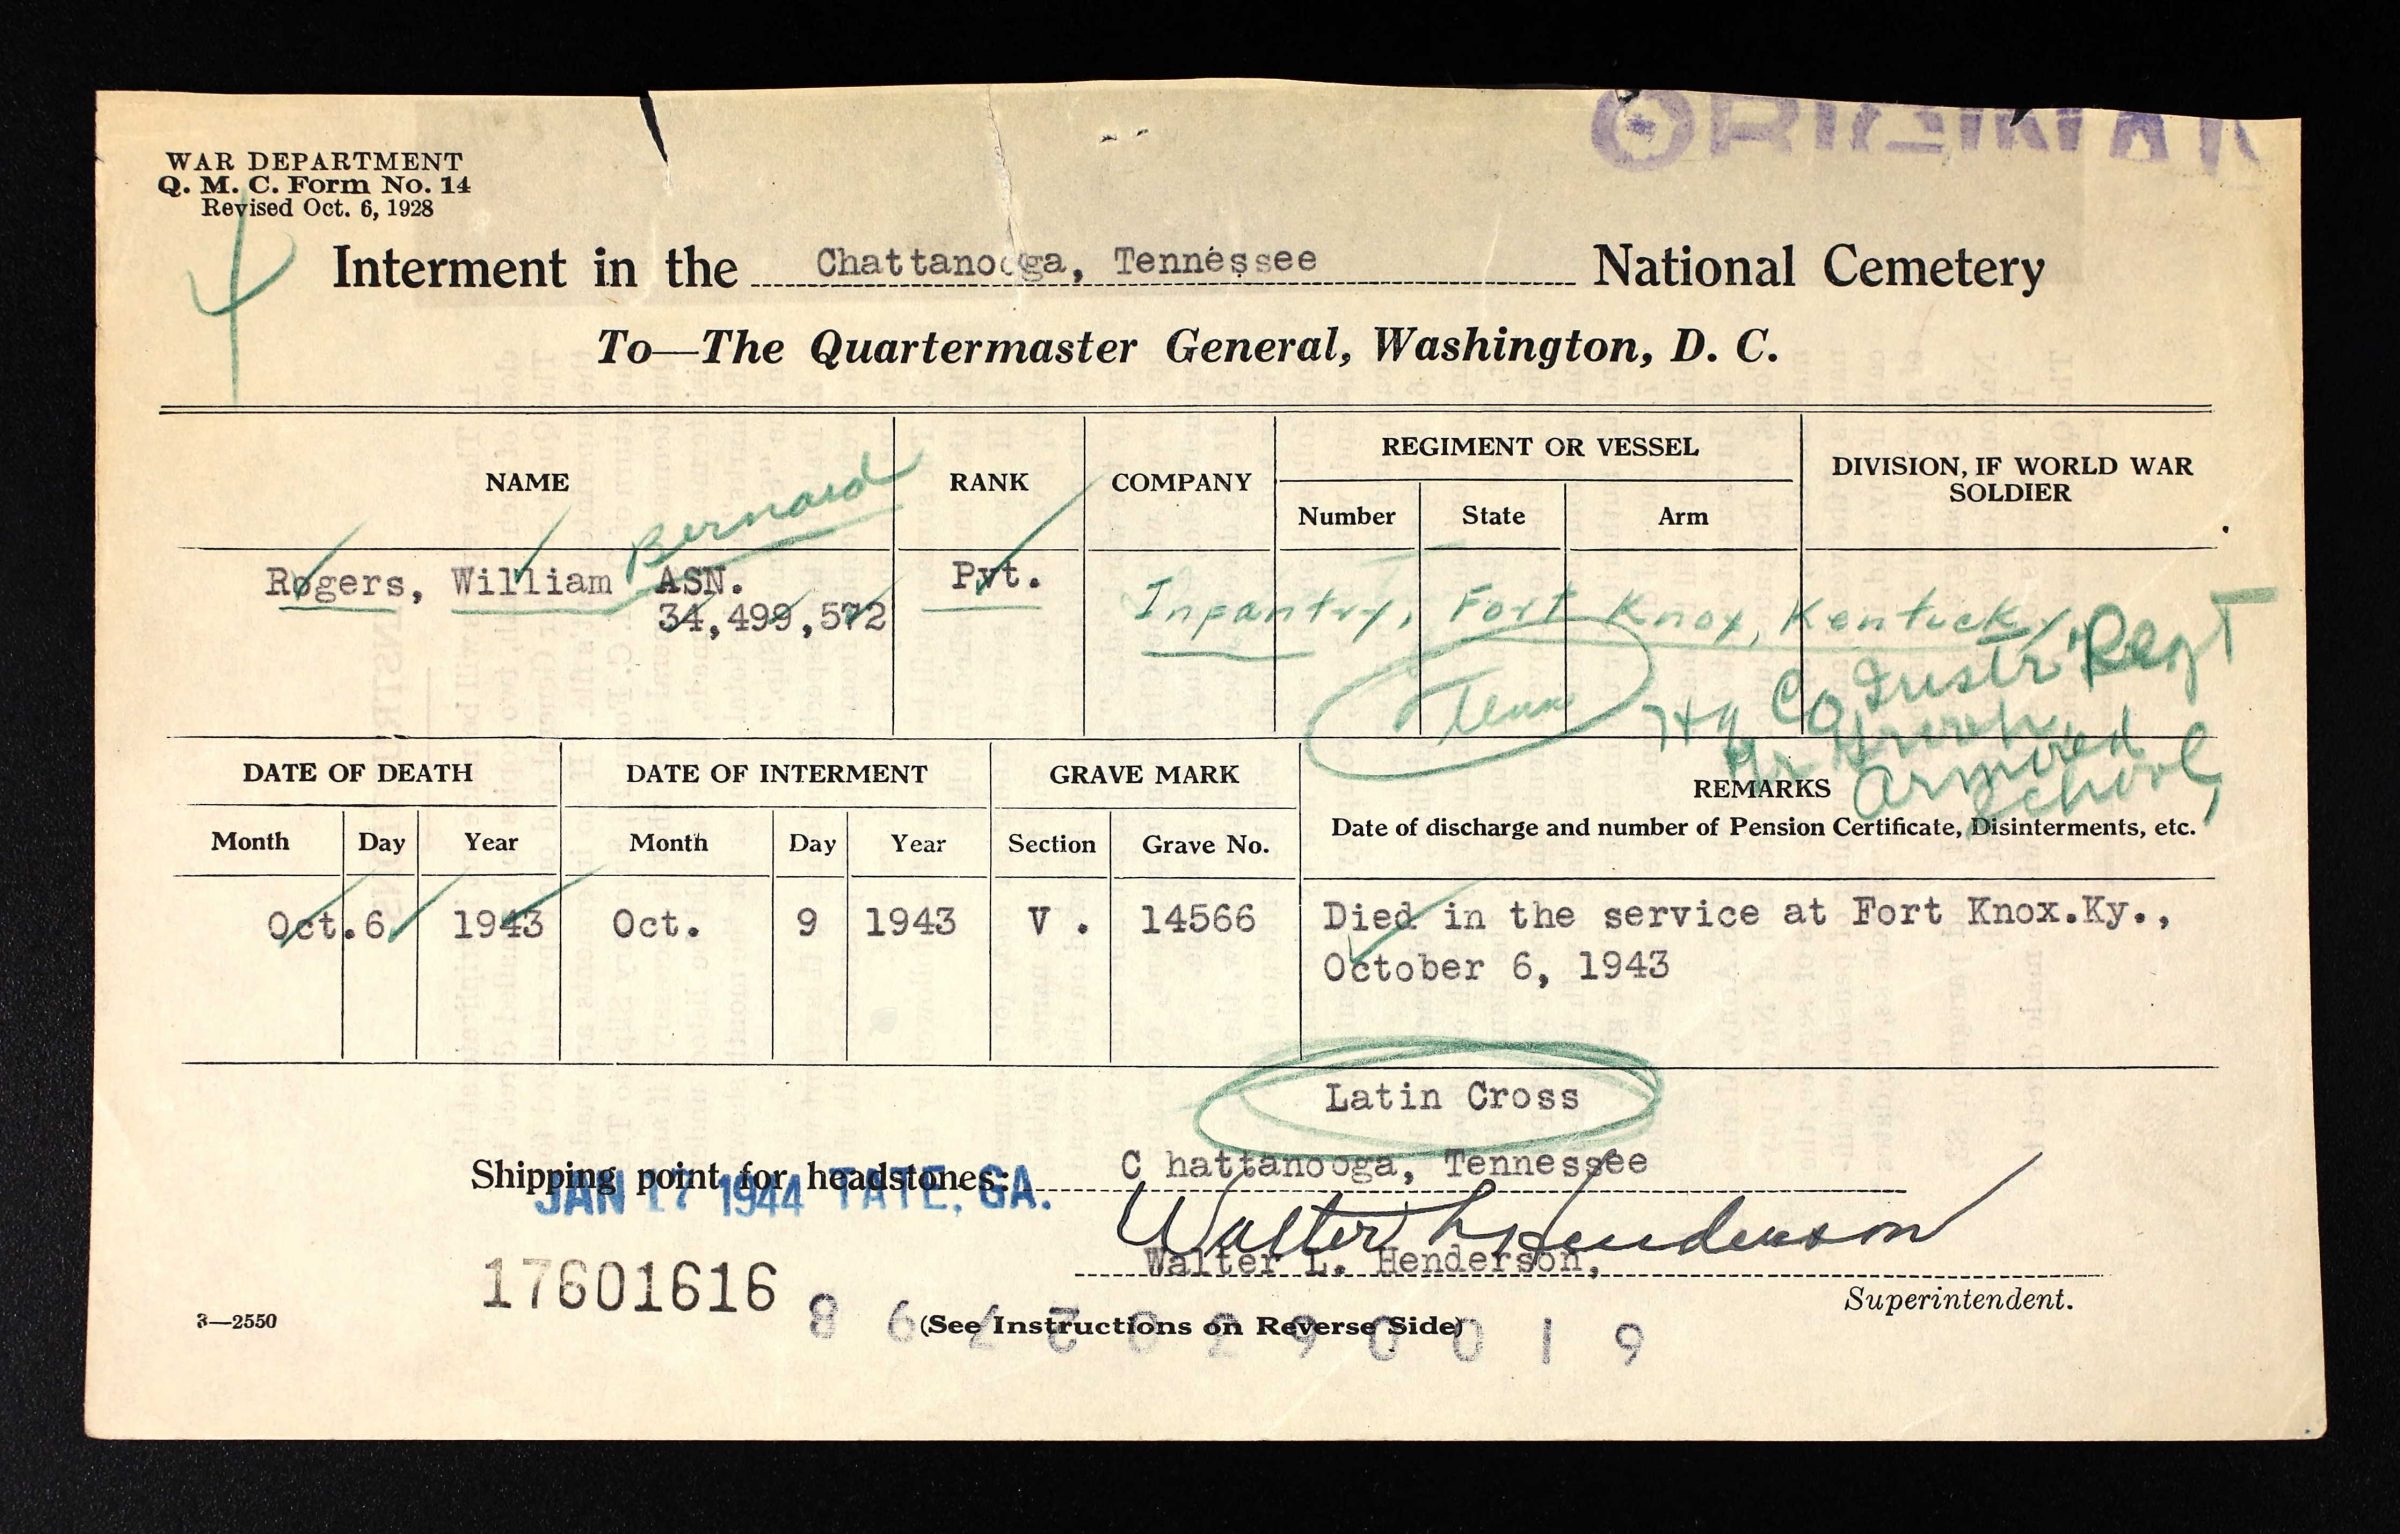 ORIGINAL
WAR DEPARTMENT
Q. M. C. Form No. 14
Revised Oct. 6, 1928
4
Interment in the Chattanooga, Tennessee National Cemetery
To—The Quartermaster General, Washington, D. C.
NAME
RANK
COMPANY
REGIMENT OR VESSEL
Number
State
Arm
DIVISION, IF WORLD WAR
SOLDIER
Bernard
Rogers, William ASN.
34,499,572
Pvt.
Infantry, Fort Knox, Kentucky
Tenn
Hq Co Instr Regt
Armored
School,
DATE OF DEATH
Month
Day
Year
DATE OF INTERMENT
Month
Day
Year
GRAVE MARK
Section
Grave No.
REMARKS
Date of discharge and number of Pension Certificate, Disinterments, etc.
Oct. 6 1943
Oct. 9 1943
V . 14566
Died in the service at Fort Knox.Ky.,
October 6, 1943
Latin Cross
Shipping point for headstones: C hattanooga, Tennessee
JAN 17 1944 TATE, GA.
Walter L Henderson
Walter L. Henderson,
Superintendent.
17601616
3—2550
(See Instructions on Reverse Side)